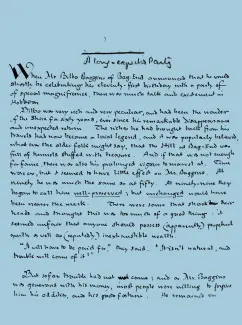 A long-expected Party
When Mr Bilbo Baggins of Bag-End announced that he would
shortly be celebrating his eleventy-first birthday with a party of
special magnificence, there was much talk and excitement in
Hobbiton.
Bilbo was very rich and very peculiar, and had been the wonder
of the Shire for sixty years, ever since his remarkable disappearance
and unexpected return. The riches he had brought back from his
travels had now become a local legend, and it was popularly believed
what ever the older folk might say, that the Hill at Bag-End was
full of tunnels stuffed with treasure. And if that was not enough
for fame, there was also his prolonged vigour to marvel at. Time
wore on, but it seemed to have little effect on Mr. Baggins. At
ninety, he was much the same as at fifty. At ninety-nine they
began to call him well-preserved; but unchanged would have
been nearer the mark. There were some that shook their
heads and thought this was too much of a good thing: it
seemed unfair that anyone should possess (apparently) perpetual
youth as well as (reputedly) inexhaustible wealth.
"It will have to be paid for," they said. "It isn't natural, and
trouble will come of it!"
But so far trouble had not come; and as Mr. Baggins
was generous with his money, most people were willing to forgive
him his oddities, and his good fortune. He remained on